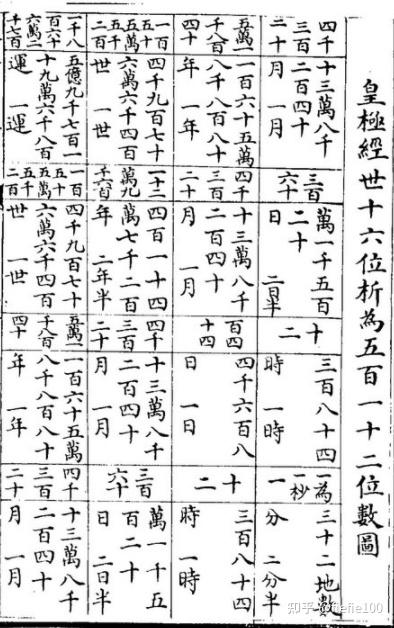 皇極經世十六位析為五百一十二位數圖
四千三百二十
十三萬八千
二百四十
月 一月
五萬一千八百四十
一百六十五萬
八千八百八十
年 一年
一百五十五萬五千二百
四千九百七十
六萬六千四百
世 一世
一千八百六十六萬二千七百
五億九千七百一
十九萬六千八百
運 一運
三百六十
萬一千五百
二十
日 二日半
四千三百二十
十三萬八千
二百四十
月 一月
一十二萬九千六百
四百一十四
萬七千二百
年 二年半
一百五十五萬五千二百
四千九百七十
六萬六千四百
世 一世
十二
三百八十四
時 一時
百四十四
四千六百八
日 一日
四千三百二十
十三萬八千
二百四十
月 一月
五萬一千八百四十
一百六十五萬
八千八百八十
年 一年
一為一秒
三十二地數
分 二分半
十二
三百八十四
時 一時
三百六十
萬一千五
百二十
日 二日半
四千三百二十
十三萬八千
二百四十
月 一月
知乎 @fiefie100